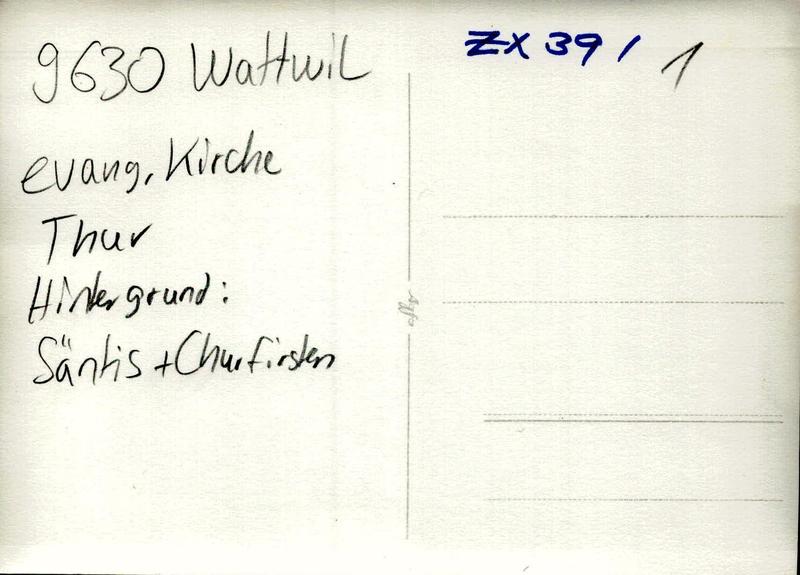 9630 Wattwil
evang. Kirche
Thur
Hintergrund:
Säntis + Churfirsten
ZX 39 / 1